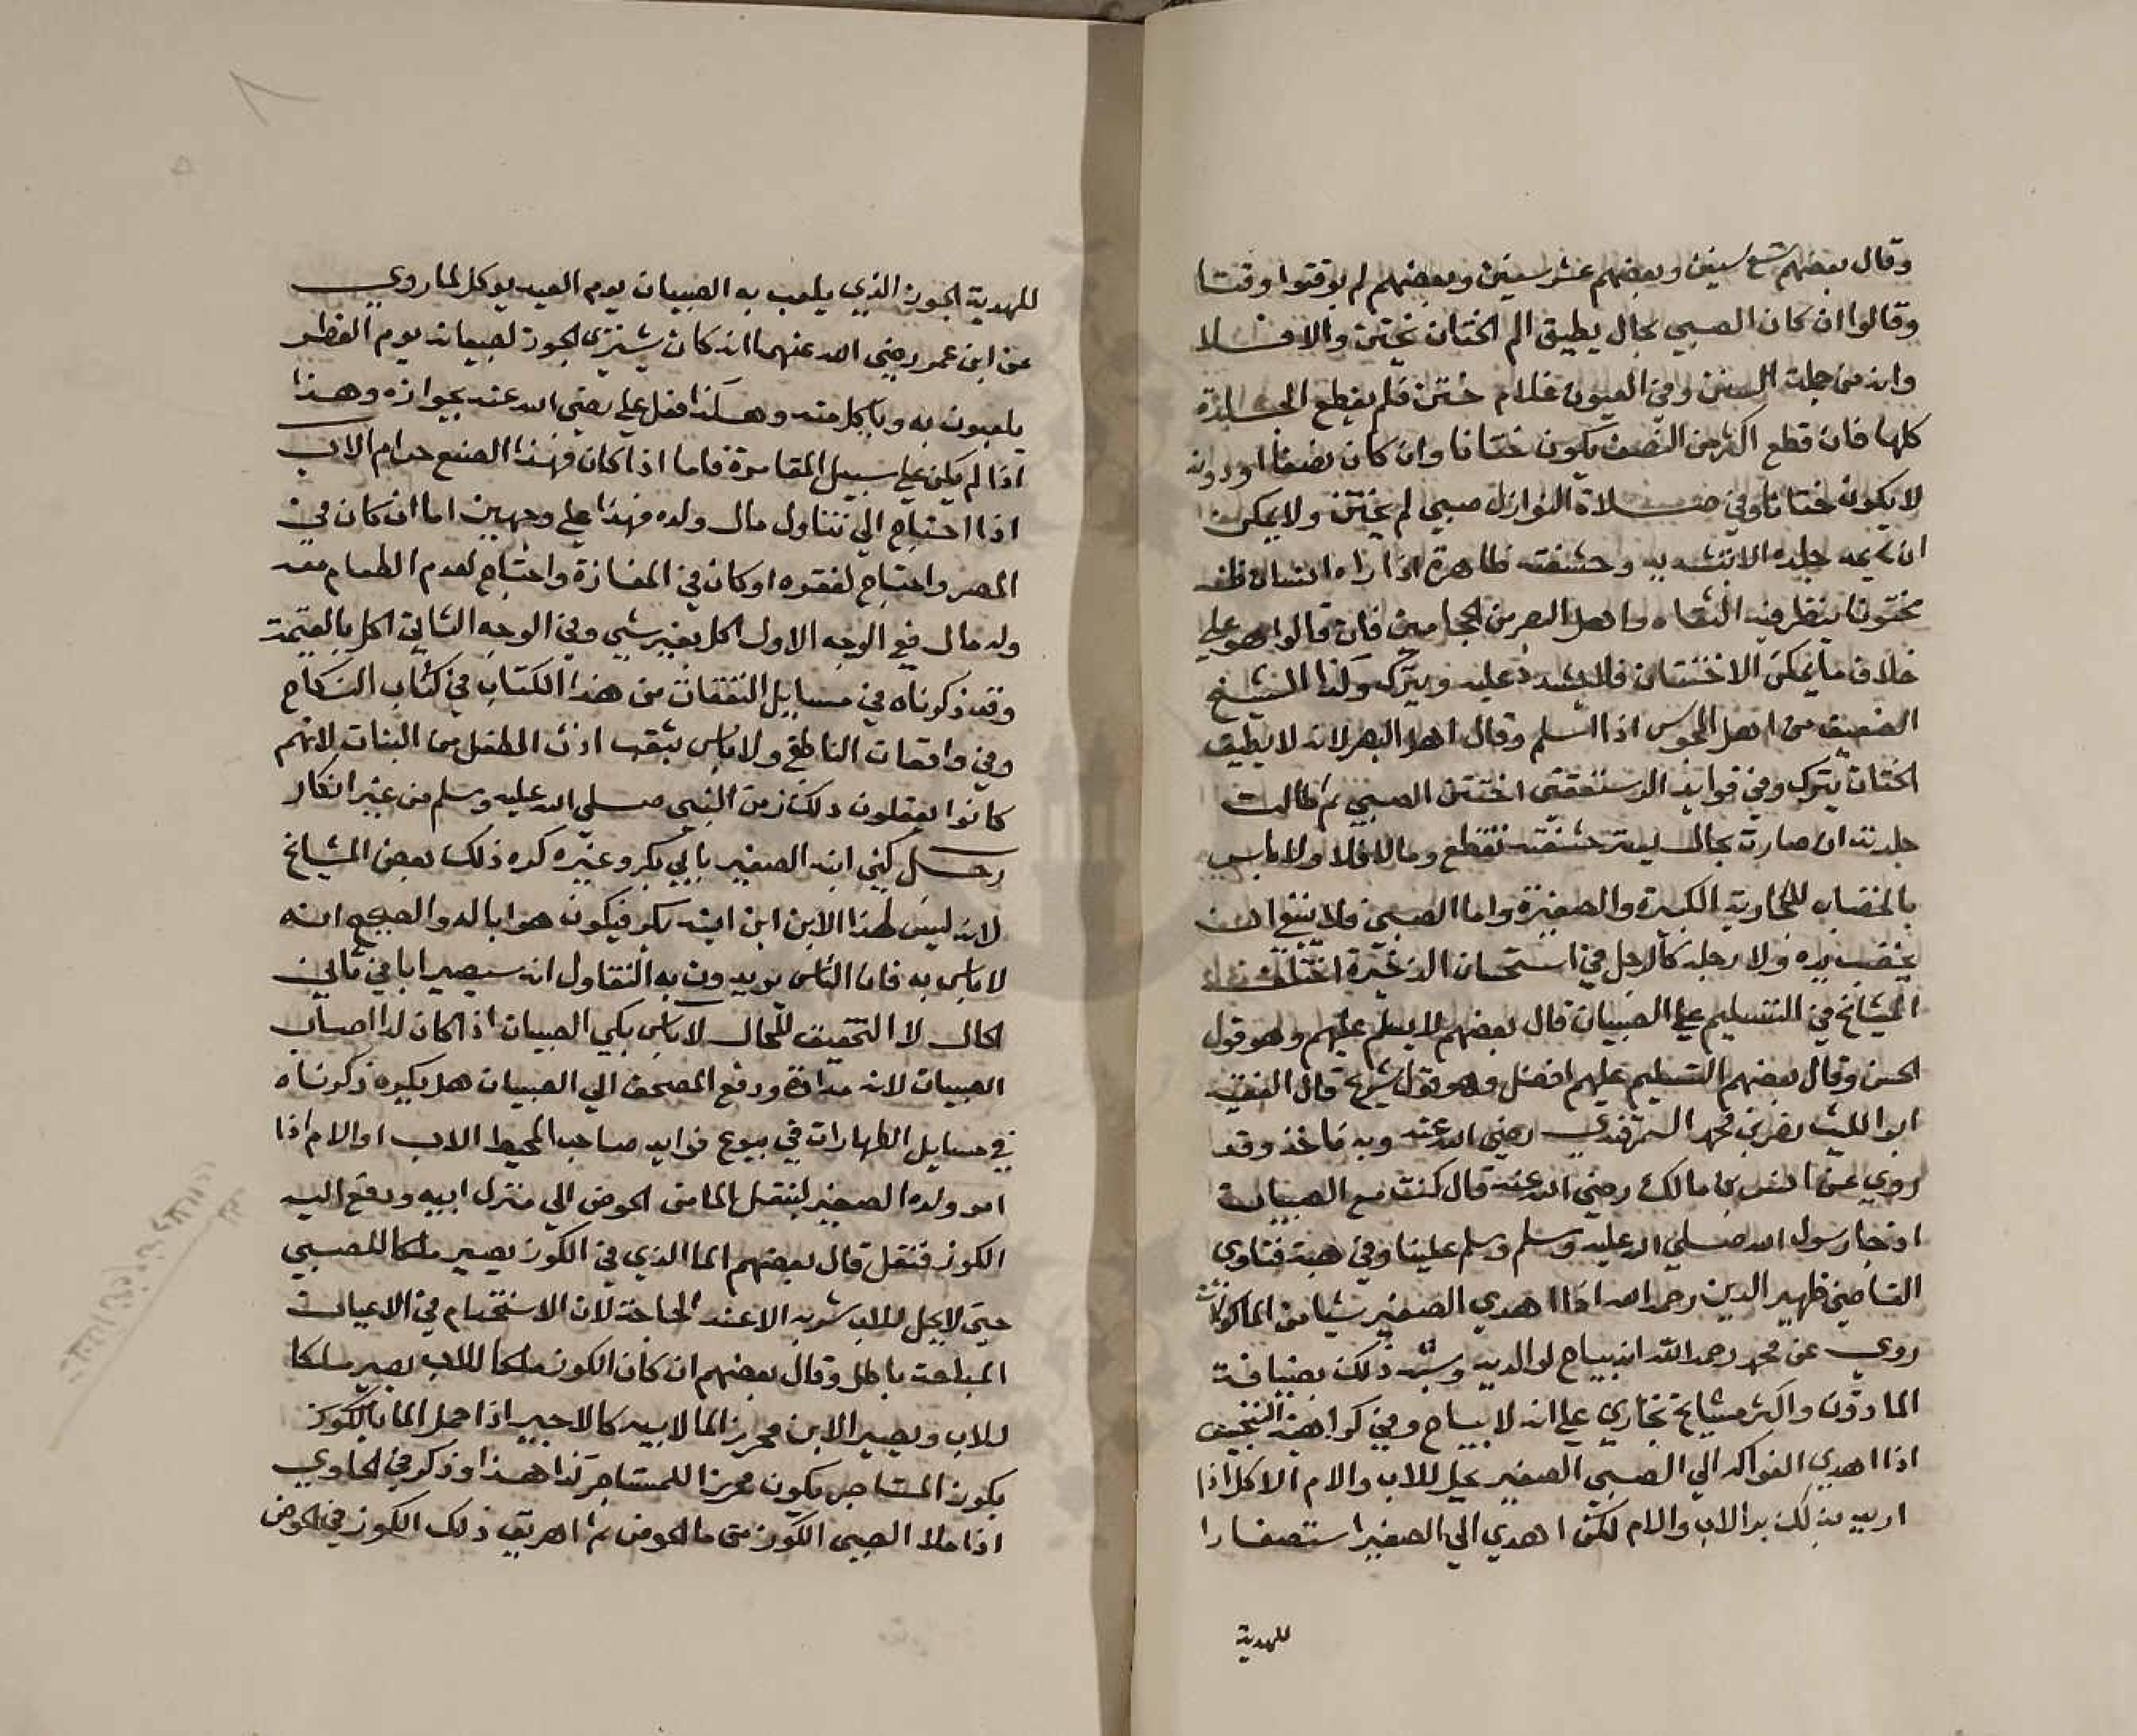 وقال بعضهم تسع سنين وبعضهم عشر سنين وبعضهم لم يوقتوا وقتا
وقالوا ان كان الصبي بحال يطيق الم الختان يختن والا فلا
وانه من جملة السنن وفي العيون غلام ختن فلم يقطع الجلدة
كلها فان قطع اكثر من النصف يكون ختانا وان كان نصفا او دونه
لا يكون ختانا وفي صلاة النوازل صبي لم يختن ولا يمكن
ان يمد جلده الا بتشديد وحشفته ظاهرة اذا راه انسان ظنه
مختونا ينظر فيه الثقاه واهل البصر من الحجامين فان قالوا هو على
خلاف ما يمكن الاختتان فلا يشدد عليه ويترك وكذا الشيخ
الضعيف من اهل المجوس اذا اسلم وقال اهل البصر لانه لا يطيق
الختان يترك وفي فوايد الرستغفني اختتن الصبي ثم طالت
جلدته ان صارت بحال يستر حشفته تقطع وما لا فلا ولا باس
بالخضاب للجارية الكبيرة والصغيرة واما الصبي فلا ينبغي ان
يخضب يده ولا رجله كالرجل في استحسان الذخيرة اختلف
المشايخ في التسليم على الصبيان قال بعضهم لا يسلم عليهم وهو قول
الحسن وقال بعضهم التسليم عليهم افضل وهو قول شريح قال الفقيه
ابو الليث نصر بن محمد السمرقندي رضي الله عنه وبه ناخذ وقد
روي عن انس بن مالك رضي الله عنه قال كنت مع الصبيان
اذ جا رسول الله صلي الله عليه وسلم وسلم علينا وفي هبة فتاوي
القاضي ظهير الدين رحمه الله اذا اهدي الصغير شيا من الماكولات
روي عن محمد رحمه الله انه يباح لوالديه وشبه ذلك بضيافة
الماذون واكثر مشايخ بخاري على انه لا يباح وفي كراهية التجنيس
اذا اهدي الفواكه الي الصبي الصغير يحل للاب والام الاكل اذا
اريد بذلك بر الاب والام لكن اهدي الي الصغير استصغارا
للهدية
للهدية الجوز الذي يلعب به الصبيان يوم العيد يوكل لما روي
عن ابن عمر رضي الله عنهما انه كان يشتري الجوز لصبيانه يوم الفطر
يلعبون به وياكل منه وهكذا فعل علي رضي الله عنه بجوازه وهذا
اذا لم يكن على سبيل المقامرة فاما اذا كان فهذا الصنع حرام الاب
اذا احتاج الي تناول مال ولده فهذا على وجهين اما ان كان في
المصر واحتاج لفقره او كان في المفازة واحتاج لعدم الطعام معه
وله مال ففي الوجه الاول اكل بغير شي وفي الوجه الثاني اكل بالقيمة
وقد ذكرناه في مسايل النفقات من هذا الكتاب في كتاب النكاح
وفي واقعات الناطفي ولا باس بثقب اذن الطفل من البنات لانهم
كانوا يفعلون ذلك زمن النبي صلي الله عليه وسلم من غير انكار
رجل كني ابنه الصغير بابي بكر وغيره كره ذلك بعض المشايخ
لانه ليس لهذا الابن ابن اسمه بكر فيكون هو ابا له والصحيح انه
لا باس به فان الناس يريدون به التفاول انه سيصير ابا في ثاني
الحال لا التحقيق للحال لا باس بكي الصبيان اذا كان لدا اصاب
الصبيان لانه مداواة ودفع المصحف الي الصبيان هل يكره ذكرناه
في مسايل الطهارات في بيوع فوايد صاحب المحيط الاب او الام اذا
امر ولده الصغير لينقل الما من الحوض الي منزل ابيه ودفع اليه
الكوز فنقل قال بعضهم الما الذي في الكوز يصير ملكا للصبي
حتي لا يحل للاب شربه الا عند الحاجة لان الاستخدام في الاعيان
المباحة باطل وقال بعضهم ان كان الكوز ملكا للاب يصير ملكا
للاب ويصير الابن محرز الما لابيه كالاجير اذا حمل الما بالكوز
بكوز المستاجر يكون محرزا للمستاجر كذا هذا وذكر في الحاوي
اذا ملا الصبي الكوز من ما الحوض ثم اهريق ذلك الكوز في الحوض